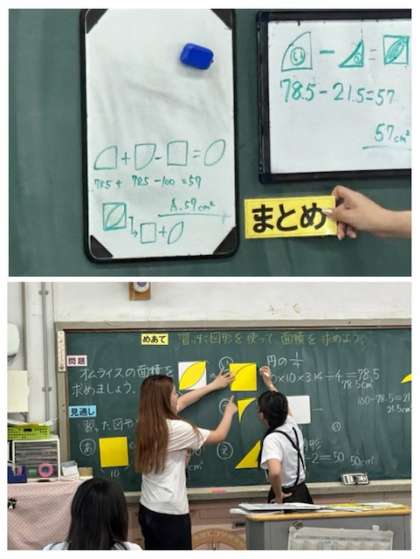 78.5 + 78.5 - 100 = 57
A. 57cm²
78.5 - 21.5 = 57
57cm²
まとめ
めあて
図形を使って、面積を求めよう。
問題
オムライスの面積を
求めましょう。
見通し
習った図形
あ
10
円の 1/4
×10×3.14÷4=78.5
78.5cm²
100-78.5=21
21.5cm²
2=50
50cm²